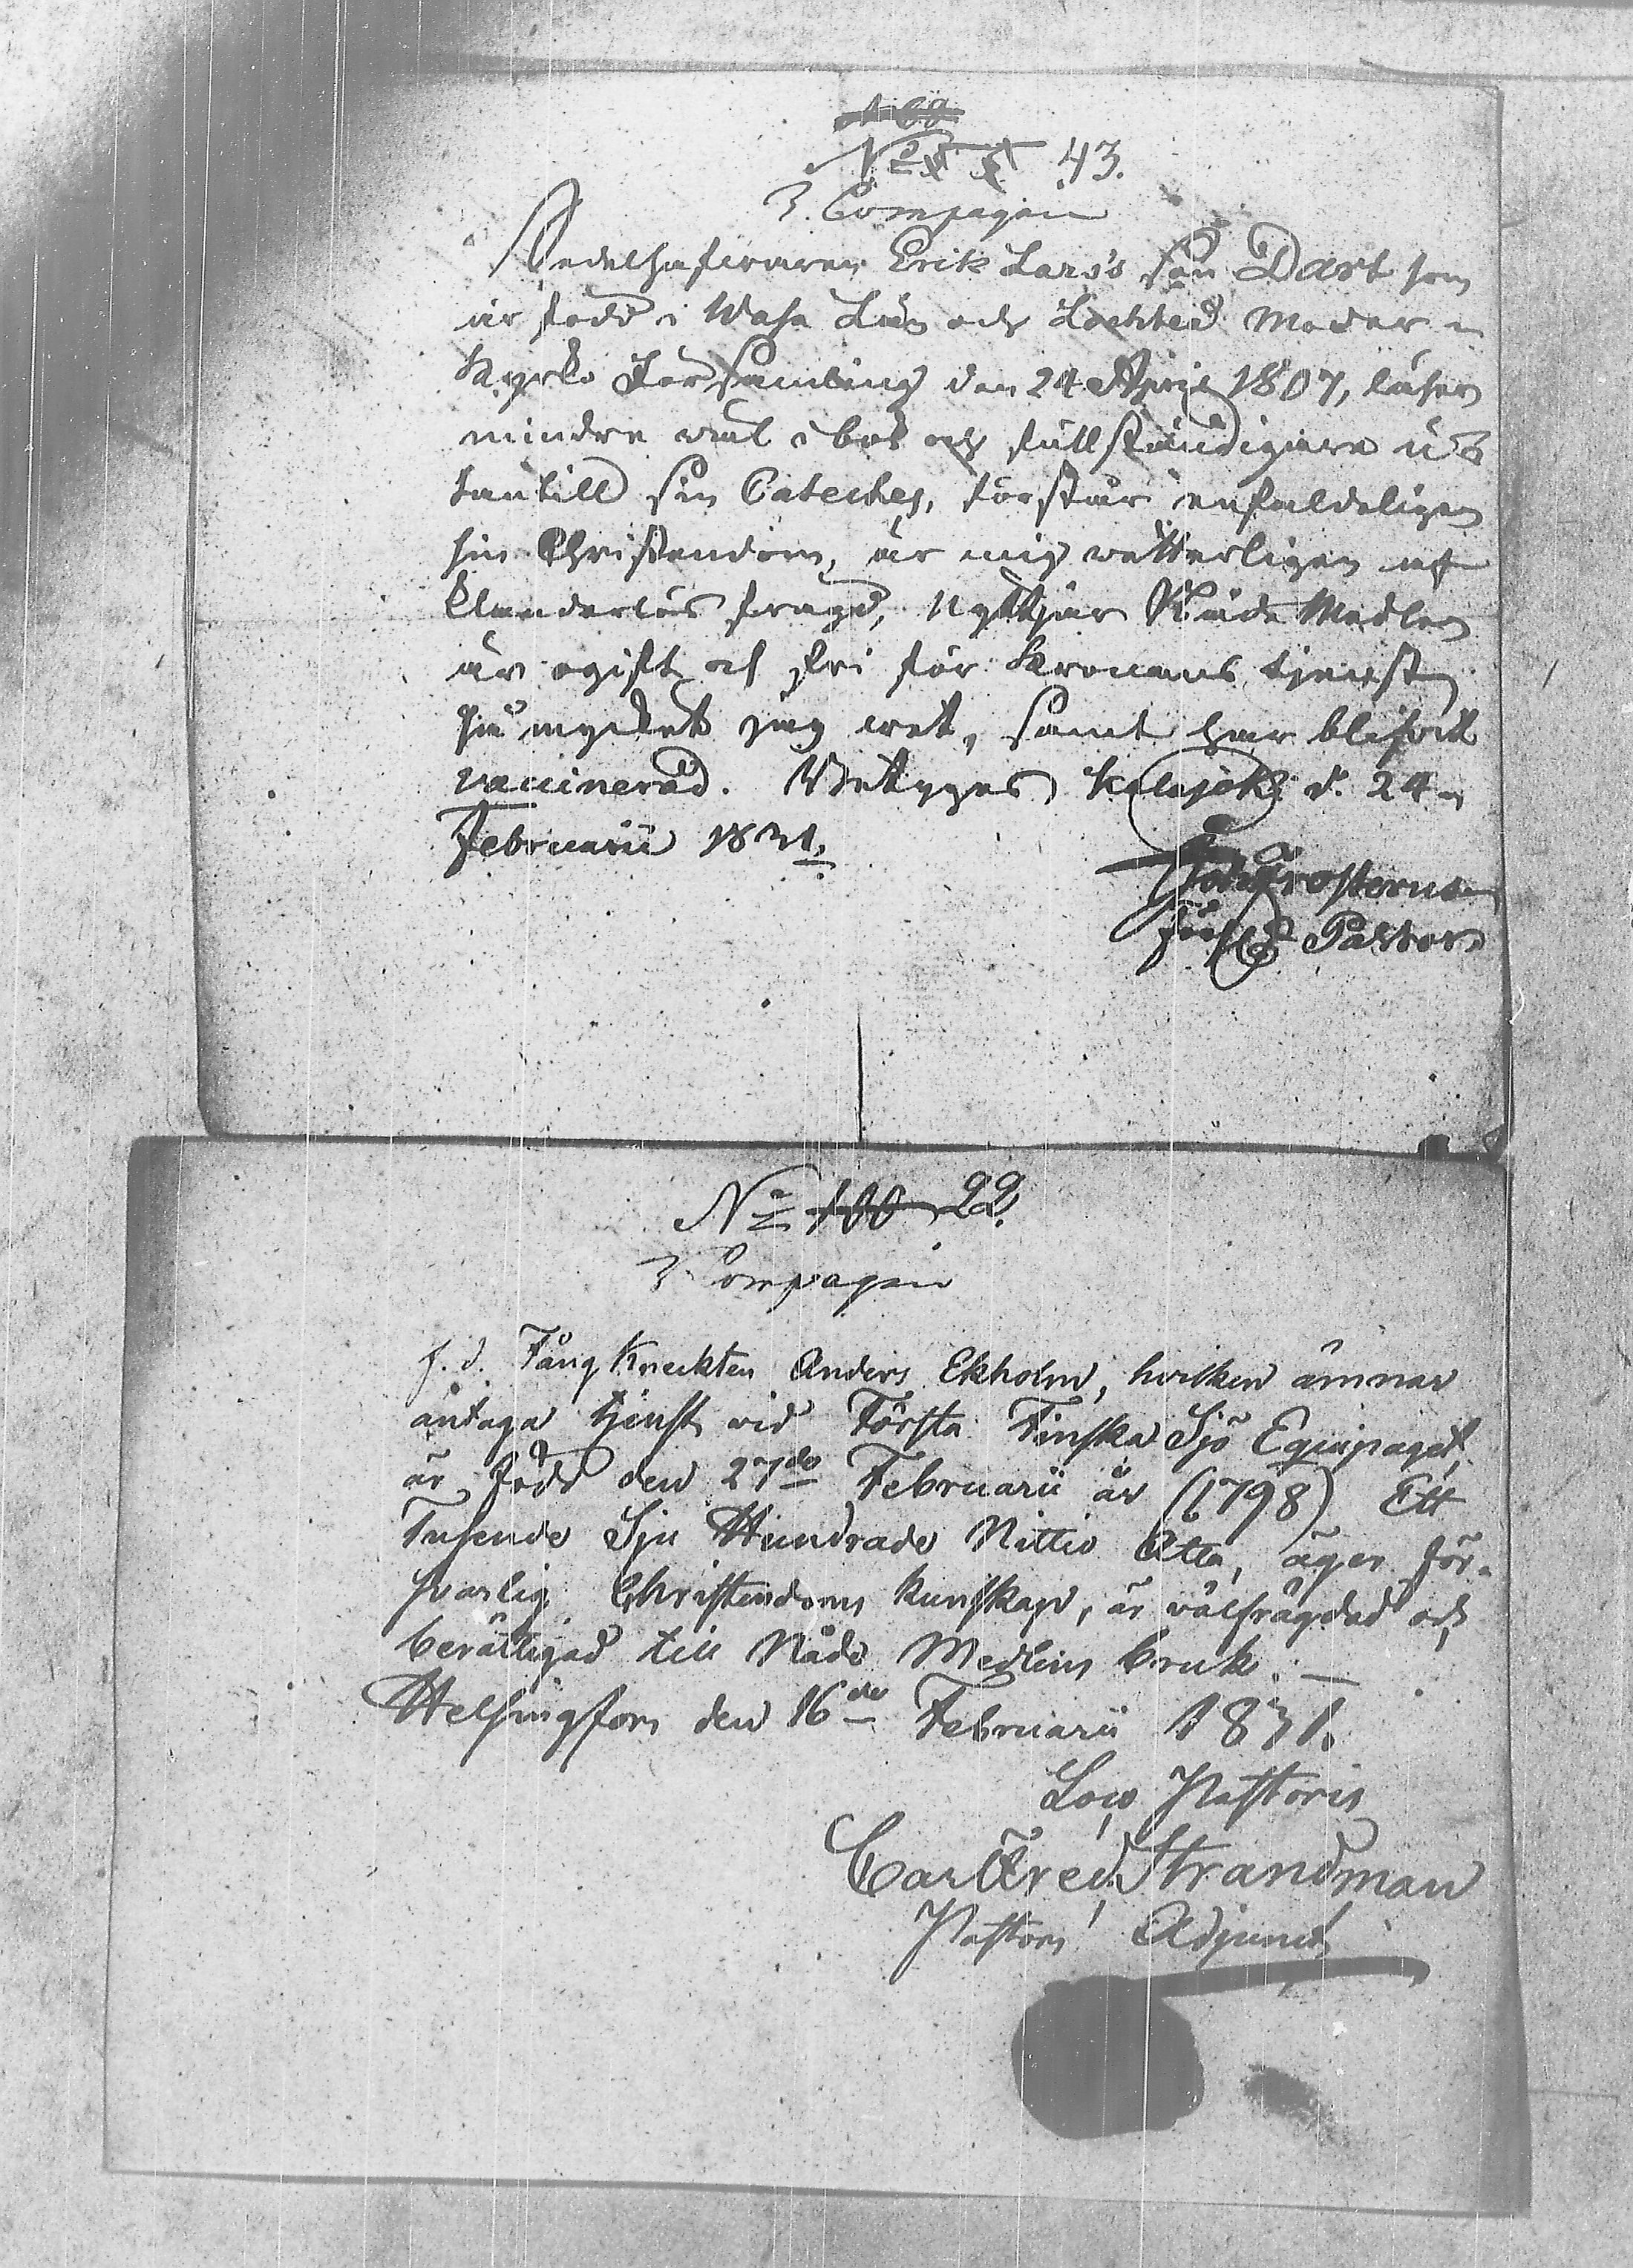 No 43.
3. Compagni
Sedelhafvaren Erik Lars's son Dart som
är född i Wasa Län och Lochteå Moder
kyrko Församling den 24 April 1807, läser
mindre wäl i bok och fullständigare u
tantill sin Cateches, förstår enfaldeligen
sin Christendom, är mig vetterligen af
klanderlös frägd, Nyttjar Nåde Medlen
är ogift och fri för Kronans tjenst
så mycket jag wet, samt har blifvit
vaccinerad. Betygar Kalajoki d. 24
Februarii 1831.
Frosterus
Pastor
No 100 22.
3 Compagni
f. d. Fång Knekten Anders Ekholm, hvilken ämnar
antaga tjenst wid Första Finska Sjö Equipaget,
är född den 27de Februarii år (1798) Ett
Tusende Sju Hundrade Nittio Åtta, äger för-
svarlig Christendoms kunskap, är välfrägdad och
berättigad till Nåde Medlens bruk. —
Helsingfors den 16de Februarii 1831.
Loco Pastoris
Carl Fred. Strandman
Pastors Adjunct